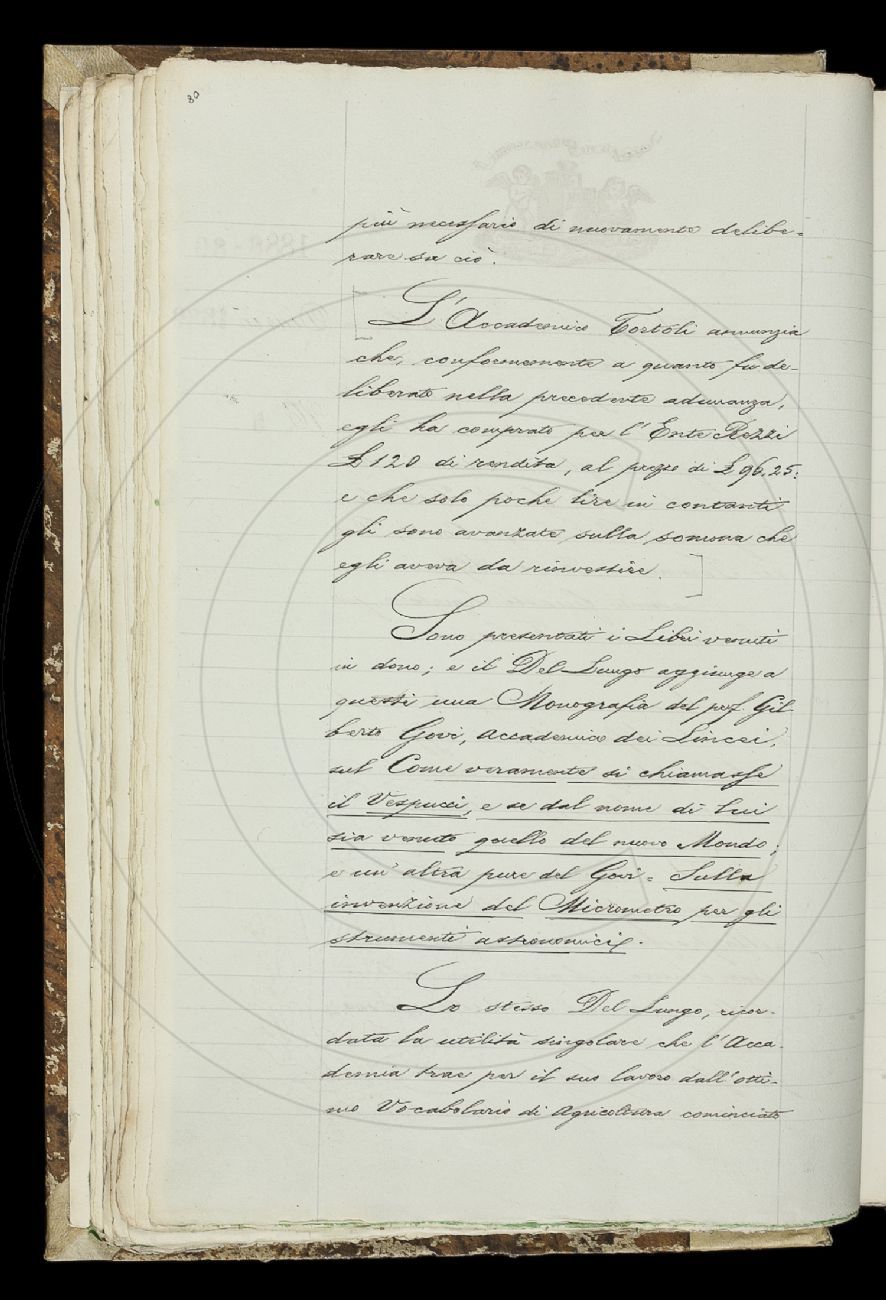 80
più necessario di nuovamente delibe-
rare su ciò.
L'Accademico Tortoli annunzia
che, conformemente a quanto fu de-
liberato nella precedente adunanza,
egli ha comprato per l'Ente Rezzi
£ 120 di rendita, al prezzo di £ 96.25:
e che solo poche lire in contanti
gli sono avanzate sulla somma che
egli aveva da rinvestire.]
Sono presentati i Libri venuti
in dono; e il Del Lungo aggiunge a
questi una Monografia del prof. Gil
berto Govi, accademico dei Lincei,
sul Come veramente si chiamasse
il Vespucci, e se dal nome di lui
sia venuto quello del nuovo Mondo;
e un' altra pure del Govi = Sulla
invenzione del Micrometro per gli
strumenti astronomici.
Lo stesso Del Lungo, ricor-
data la utilità singolare che l'Acca-
demia trae per il suo lavoro dall'otti-
mo Vocabolario di Agricoltura cominciato